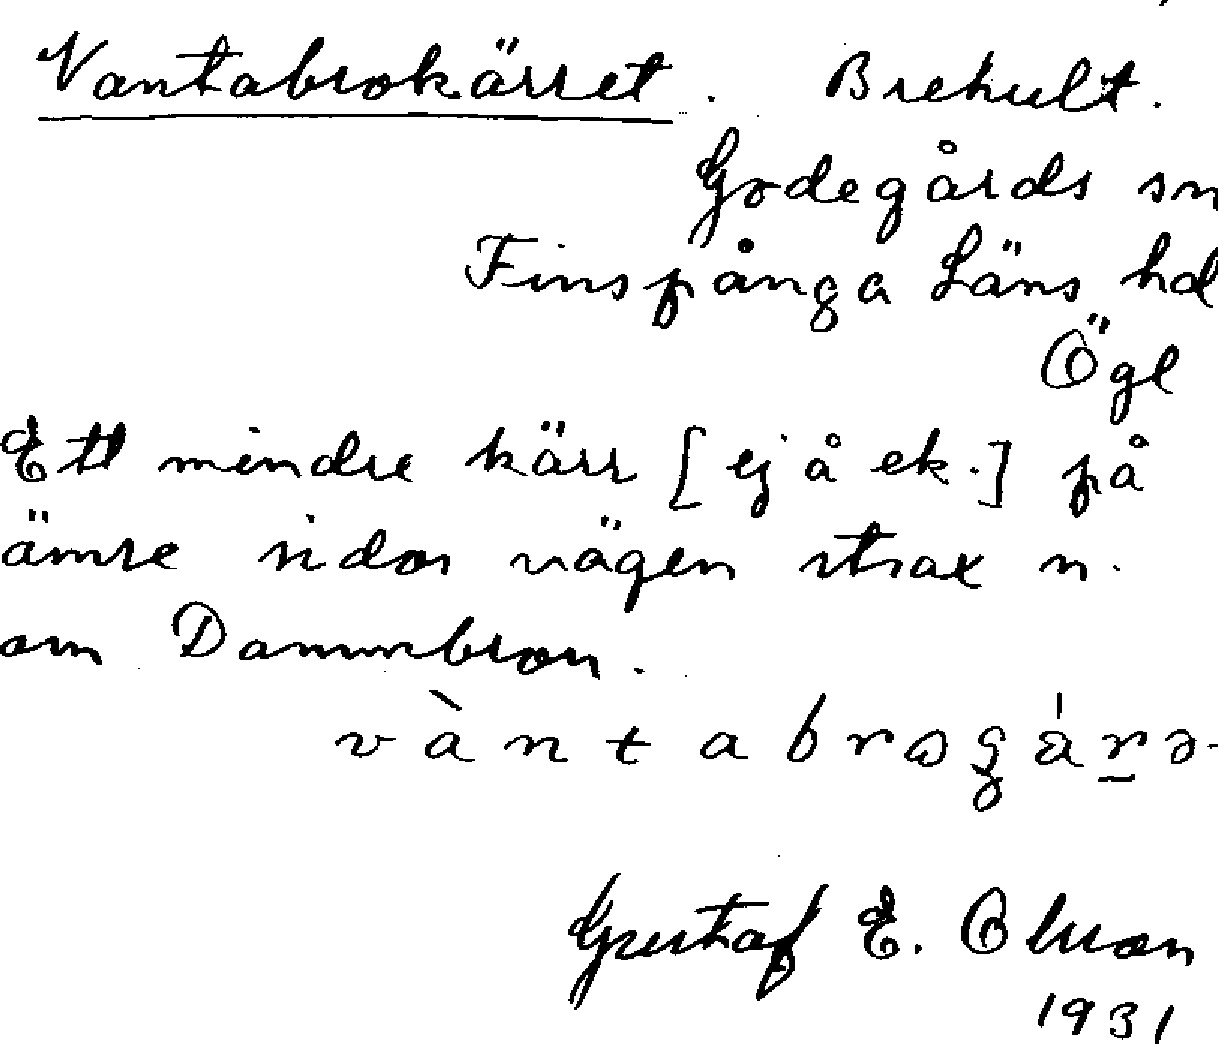 Vantabrokärret. Brehult.
Godegårds sn
Finspånga Läns hd
Ögl
Ett mindre kärr [ej å ek.] på
ömse sidor vägen strax n.
om Dammbron.
vàntabrogärə
Gustaf E. Olson
1931